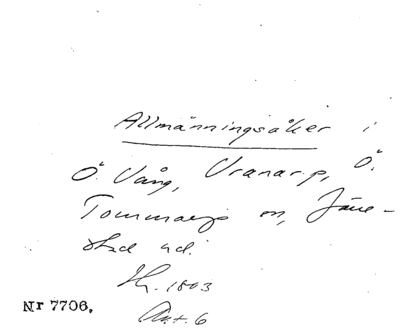 Allmänningsåker i
Ö. Vång, Vranarp, Ö.
Tommarps sn, Järe-
stad hd.
1803
Ant. 6
Nr 7706.